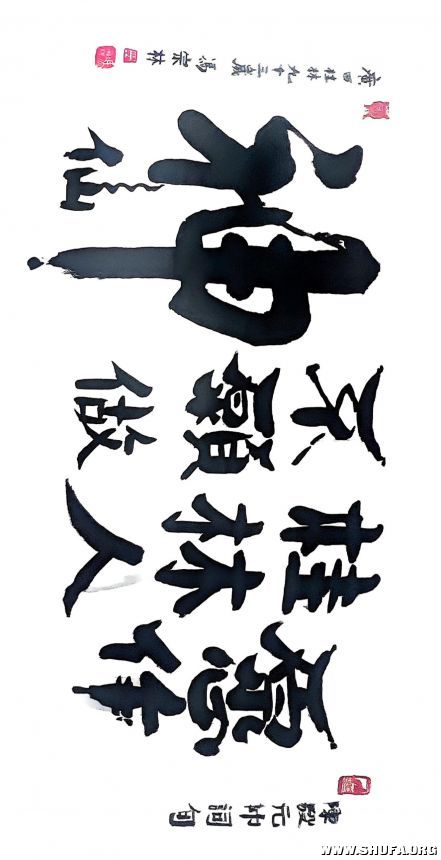 陳毅元帅詞句
愿作
桂林人
不願做
神仙
廣西桂林九十三歲馮宗林
WWW.SHUFA.ORG